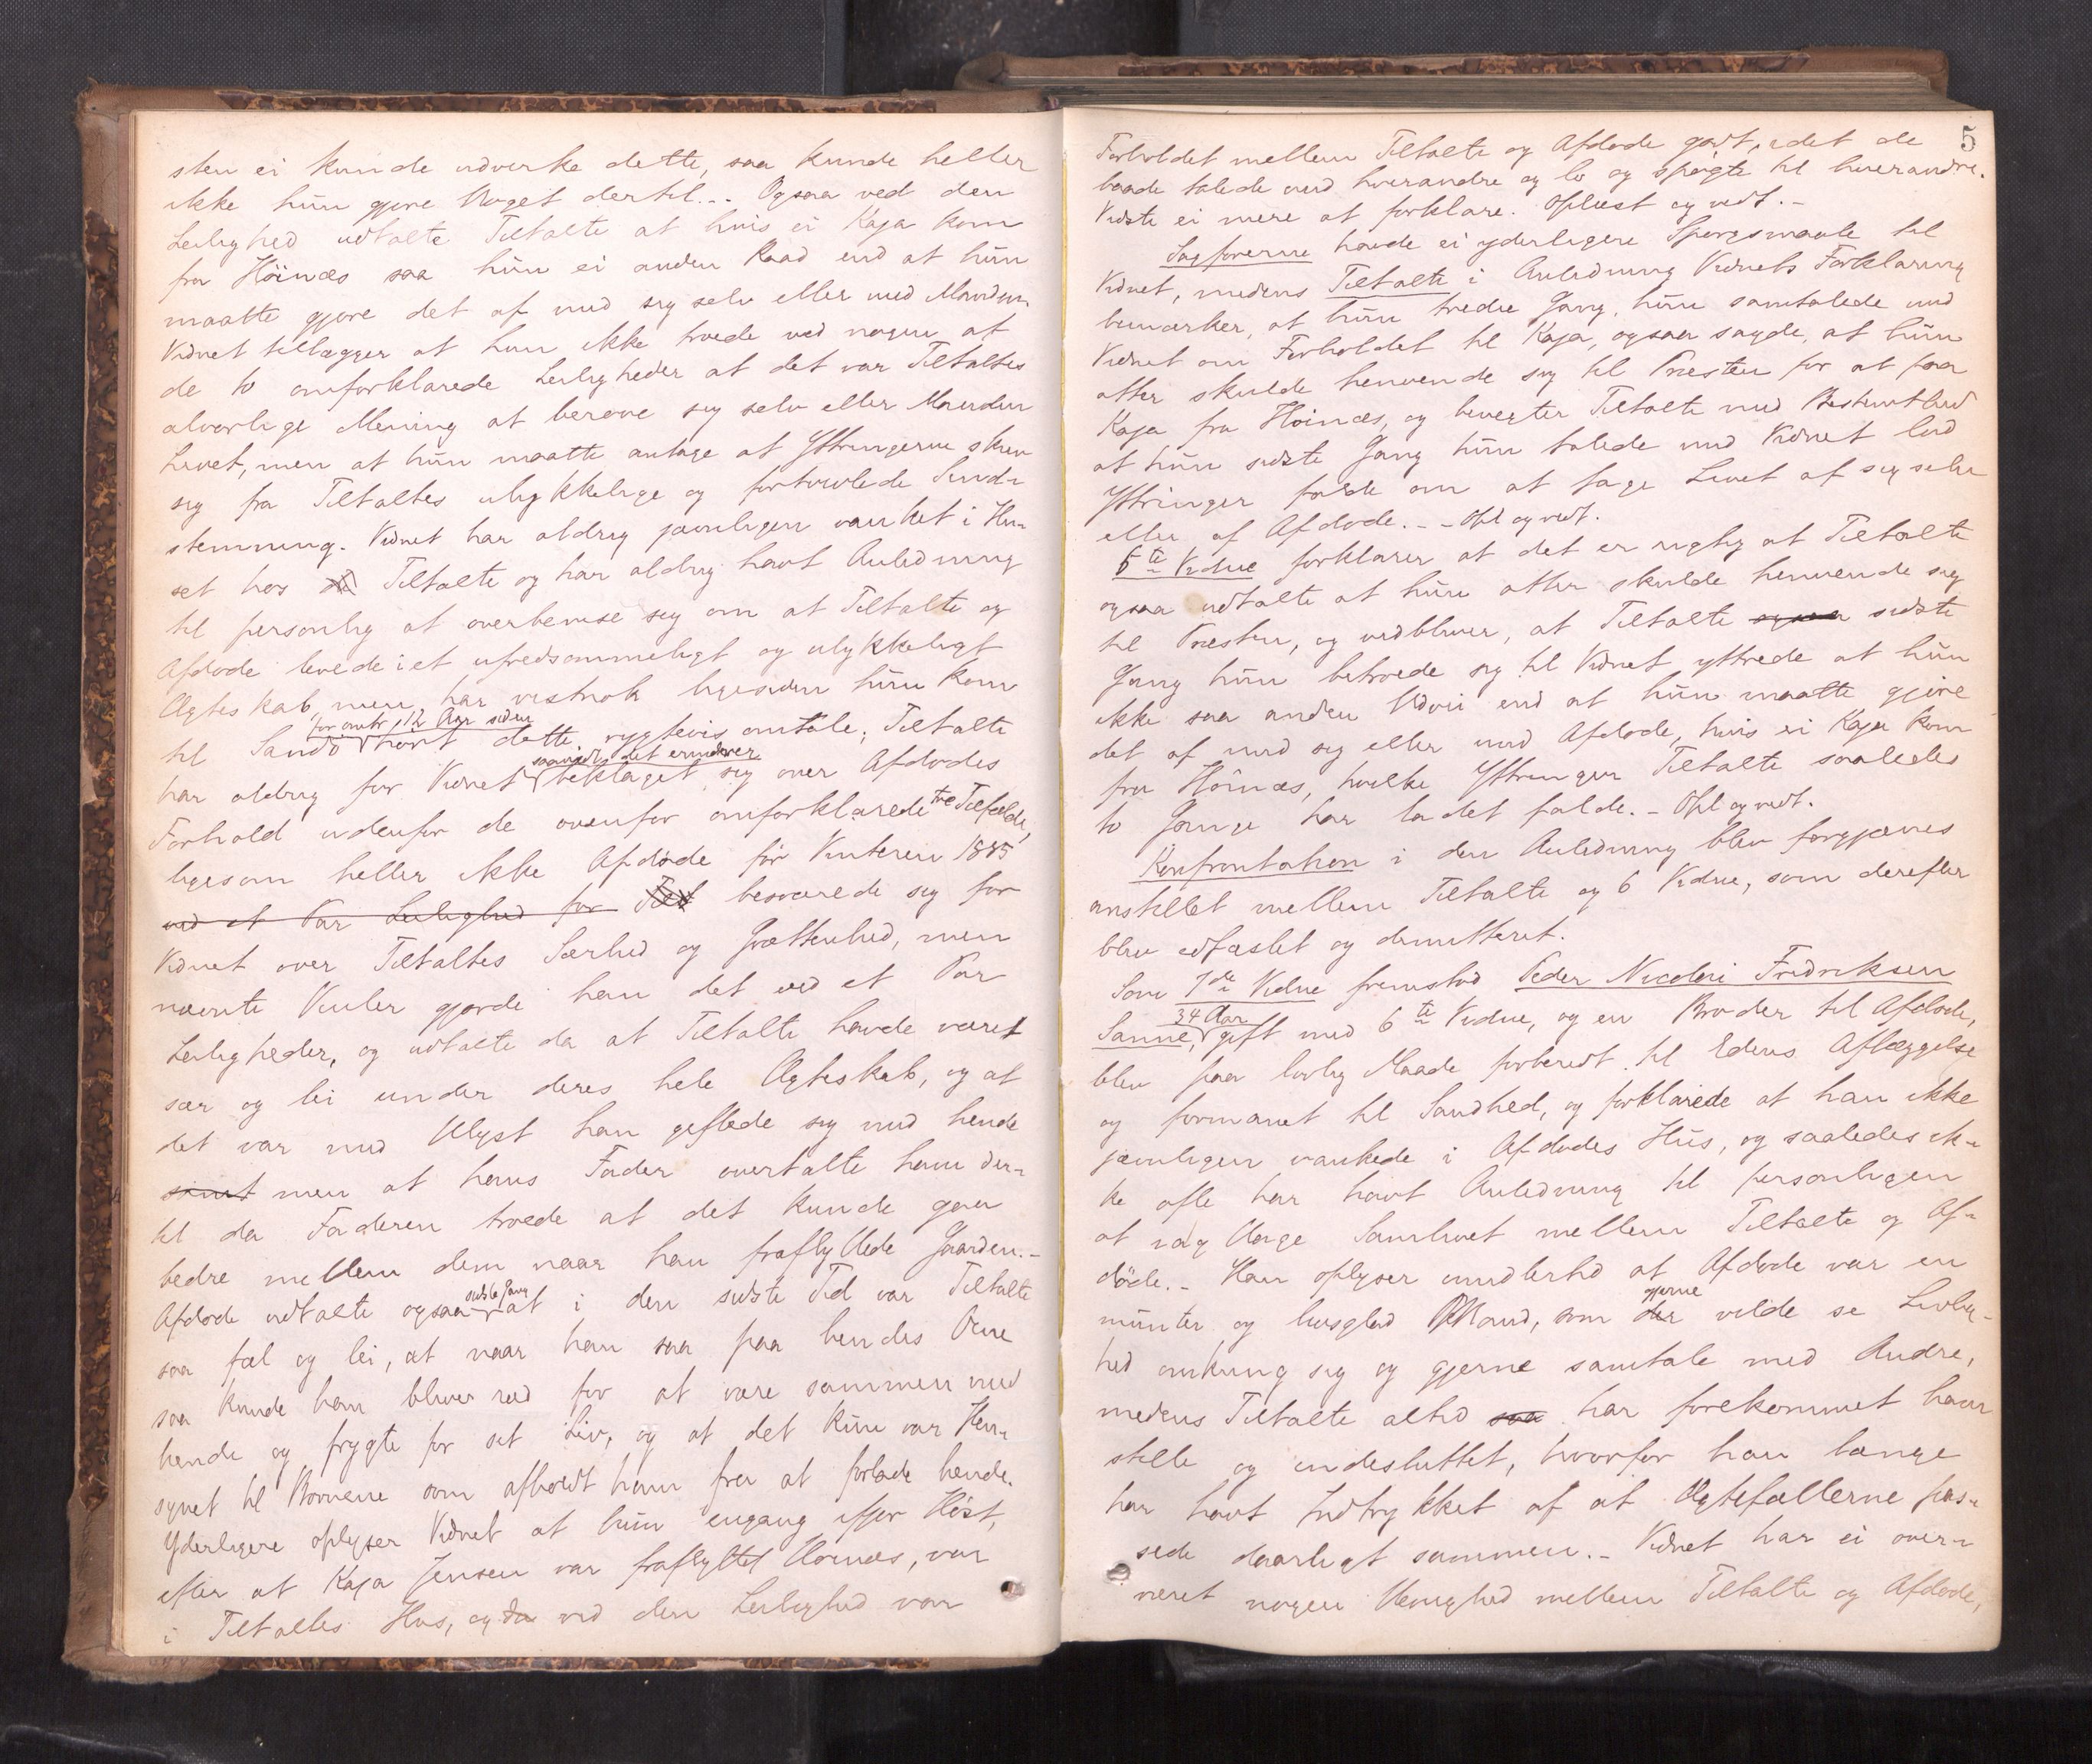 sten ei kunde udvirke dette, saa kunde heller
ikke hun gjøre Noget dertil. - Ogsaa ved den
Leilighed udtalte Tiltalte at hvis ei Kaja kom
fra Höinæs saa hun ei anden Raad end at hun
maatte gjøre det af med sig selv eller med Manden.
Vidnet tillægger at hun ikke troede ved nogen af
de to omforklarede Leiligheder at det var Tiltaltes
alvorlige Mening at berøve sig selv eller Manden
Livet, men at hun maatte antage at Yttringerne skrev
sig fra Tiltaltes ulykkelige og fortvivlede Sinds-
stemning. Vidnet har aldrig jævnligen vanket i Hu-
set hos Tiltalte og har aldrig havt Anledning
til personlig at overbevise sig om at Tiltalte og
Afdøde levede i et ufredsommeligt og ulykkeligt
Ægteskab, men har vistnok ligesiden hun kom
for omtr. 12 Aar siden
til Sandö hørt dette rygtevis omtale; Tiltalte
saavidt det erindrer
har aldrig for Vidnet beklaget sig over Afdødes
Forhold udenfor de ovenfor omforklarede tre Tilfælde,
ligesom heller ikke Afdöde før Vinteren 1885
ved et Par Leilighed for Tilt besværede sig for
Vidnet over Tiltaltes Særhed og Trættenhed, men
nævnte Vinter gjorde han det ved et Par
Leiligheder, og udtalte da at Tiltalte havde været
sær og lei under deres hele Ægteskab, og at
det var med Ulyst han giftede sig med hende
samt men at hans Fader overtalte ham der-
til da Faderen troede at det kunde gaa
bedre mellem dem naar han fraflyttede Gaarden. -
sidste Gang
Afdøde udtalte ogsaa at i den sidste Tid var Tiltalte
saa fæl og lei, at naar han saa paa hendes Øine
saa kunde han bliver ræd for at være sammen med
hende og frygte for sit Liv, og at det kun var Hen-
synet til Børnene som afholdt ham fra at forlade hende.
Yderligere oplyser Vidnet at hun engang ifjor Høst,
efter at Kaja Jensen var fraflyttet Hoinæs, var
i Tiltaltes Hus, og da ved den Leilighed var
5
Forholdet mellem Tiltalte og Afdøde godt, idet de
baade talede med hverandre og lo og spögte til hverandre.
Vidste ei mere at forklare. Oplæst og vedt. -
Sagførerne havde ei yderligere Spørgsmaale til
Vidnet, medens Tiltalte i Anledning Vidnets Forklaring
bemærker, at hun tredie Gang, hun samtalede med
Vidnet om Forholdet til Kaja, ogsaa sagde, at hun
atter skulde henvende sig til Præsten for at faa
Kaja fra Höinæs, og benegter Tiltalte med Bestemthed
at hun sidste Gang hun talede med Vidnet lod
Yttringer falde om at tage Livet af sig selv
eller af Afdøde. - - Opl og vedt.
6te Vidne forklarer at det er rigtig at Tiltalte
ogsaa udtalte at hun atter skulde henvende sig
til Præsten, og vedbliver, at Tiltalte ogsaa sidste
Gang hun betroede sig til Vidnet yttrede at hun
ikke saa anden Udvei end at hun maatte gjöre
det af med sig eller med Afdøde, hvis ei Kaja kom
fra Höinæs, hvilke Yttringer Tiltalte saaledes
to Gange har ladet falde. - Opl og vedt.
Konfrontation i den Anledning blev forgjæves
anstillet mellem Tiltalte og 6 Vidne, som derefter
blev edfæstet og demitteret.
Som 7de Vidne fremstod Peder Nicolai Fredriksen
34 Aar
Sanne, gift med 6te Vidne, og en Broder til Afdøde,
blev paa lovlig Maade forberedt til Edens Aflæggelse
og formanet til Sandhed, og forklarede at han ikke
jævnligen vankede i Afdødes Hus, og saaledes ik-
ke ofte har havt Anledning til personligen
at iagttage Samlivet mellem Tiltalte og Af-
döde. - Han oplyser imidlertid at Afdøde var en
gjerne
munter og livsglad Mand, som der vilde se Livlig-
hed omkring sig og gjerne samtale med Andre,
medens Tiltalte altid saa har forekommet ham
stille og indesluttet, hvorfor han længe
har havt Indtrykket af at Ægtefællerne pas-
sede daarligt sammen. - Vidnet har ei over-
været nogen Uenighed mellem Tiltalte og Afdøde,